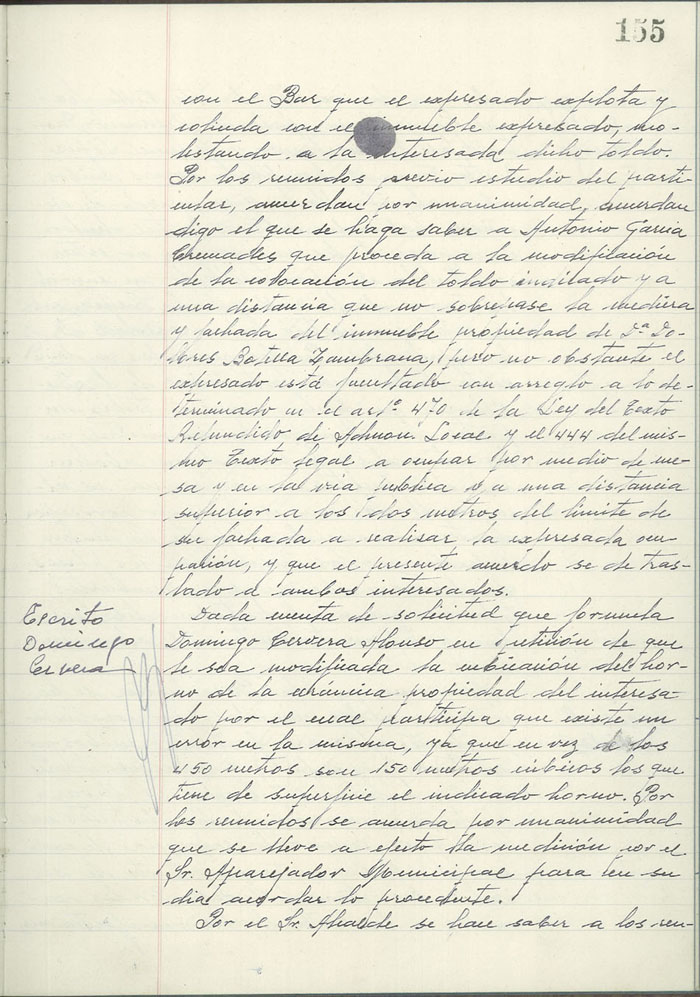 155
con el Bar que el expresado explota y
colinda con el inmueble expresado, mo-
lestando a la interesada dicho toldo.
Por los reunidos previo estudio del parti-
cular, acuerdan por unanimidad, acuerdan
digo el que se haga saber a Antonio Garcia
Cremades que proceda a la modificación
de la colocación del toldo indicado y a
una distancia que no sobrepase la mediera
y fachada del inmueble propiedad de Dª. Do-
lores Botella Zambrana, pero no obstante el
expresado está facultado con arreglo a lo de-
terminado en el artº 470 de la Ley del Texto
Refundido de Admon. Local y el 444 del mis-
mo Texto legal a ocupar por medio de me-
sa y en la via publica a una distancia
superior a los dos metros del limite de
su fachada a realizar la expresada ocu-
pación, y que el presente acuerdo se de tras-
lado a ambos interesados.
Escrito
Domingo
Cervera
Dada cuenta de solicitud que formula
Domingo Cervera Alonso en petición de que
le sea modificada la ubicación del hor-
no de la cerámica propiedad del interesa-
do por el cual participa que existe un
error en la misma, ya que en vez de los
450 metros son 150 metros cúbicos los que
tiene de superficie el indicado horno. Por
los reunidos se acuerda por unanimidad
que se lleve a efecto la medición por el
Sr. Aparejador Municipal para en su
dia acordar lo procedente.
Por el Sr. Alcalde se hace saber a los reu-